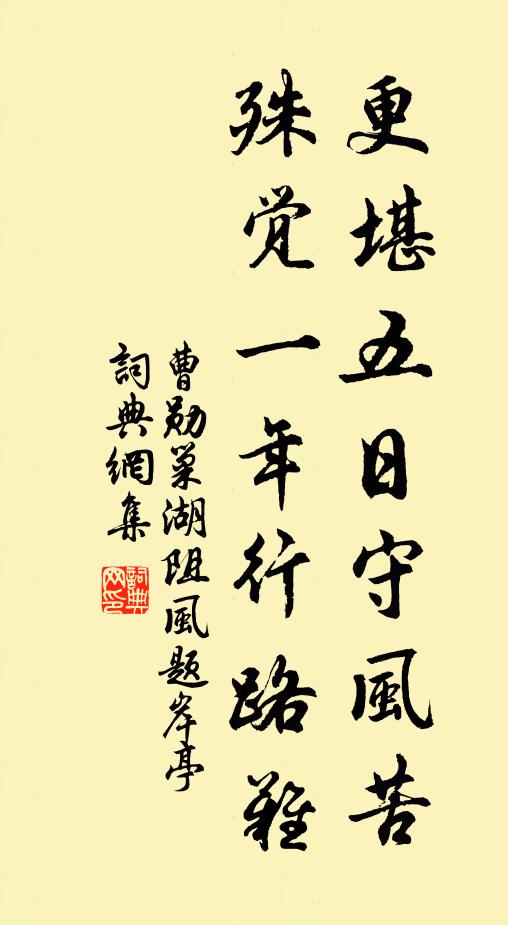 更堪五日守風苦
殊觉一年行路難
曹勋巢湖阻風题岸亭
詞典網集
詞典
网印